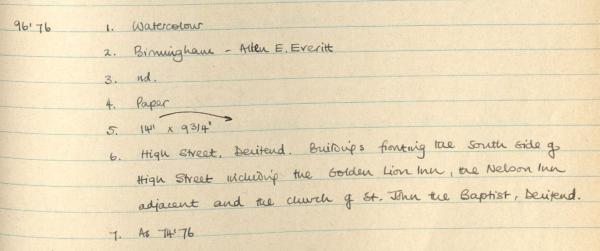 96'76 1. Watercolour
2. Birmingham - Allen E. Everitt
3. nd.
4. Paper
5. 14" x 9 3/4"
6. High Street, Deritend. Buildings fronting the South side of
High Street including the Golden Lion Inn, the Nelson Inn
adjacent and the church of St. John the Baptist, Deritend.
7. As 74'76